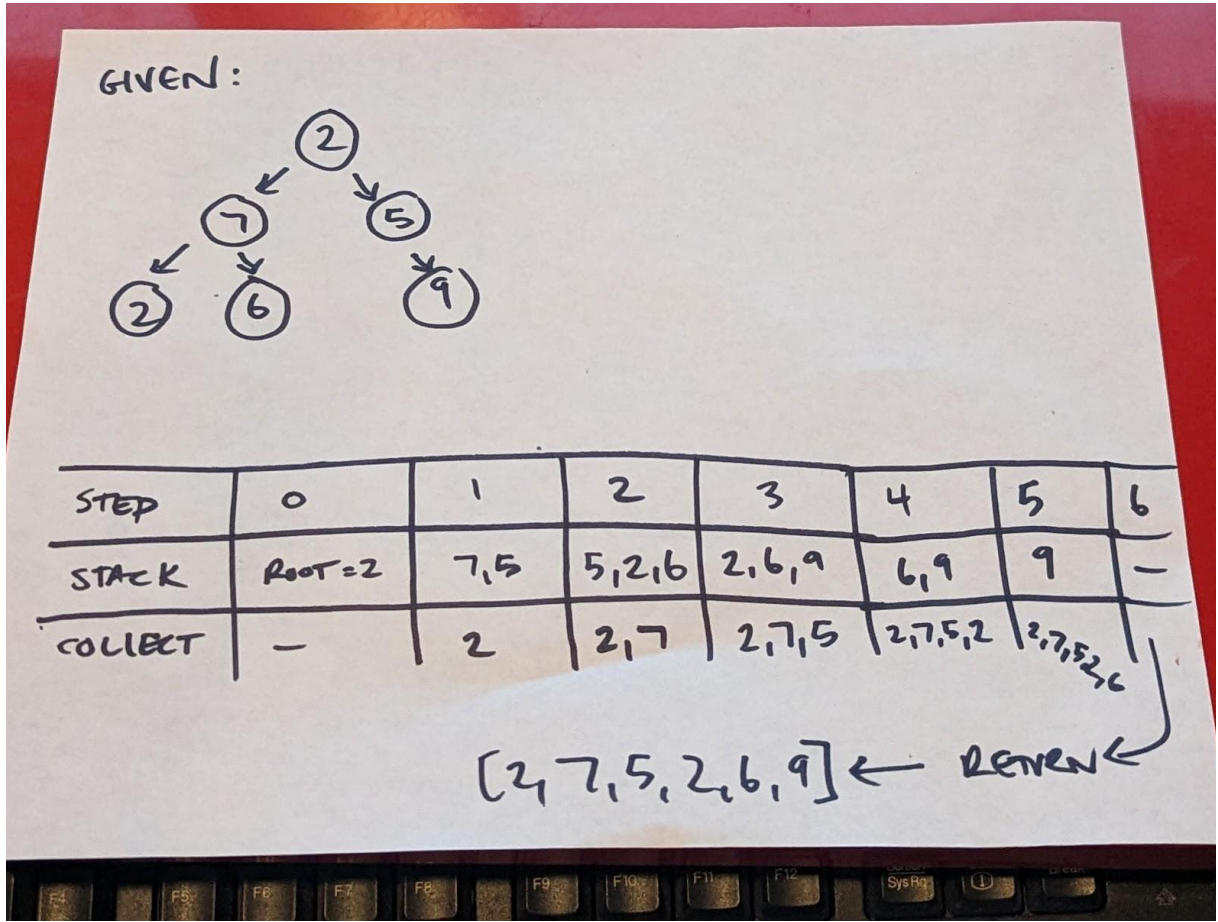 GIVEN:
2
7 5
2 6 9
STEP 0 1 2 3 4 5 6
STACK ROOT=2 7,5 5,2,6 2,6,9 6,9 9 —
COLLECT — 2 2,7 2,7,5 2,7,5,2 2,7,5,2,6
[2,7,5,2,6,9] ← RETURN
F4 F5 F6 F7 F8 F9 F10 F11 F12 Sys Rq